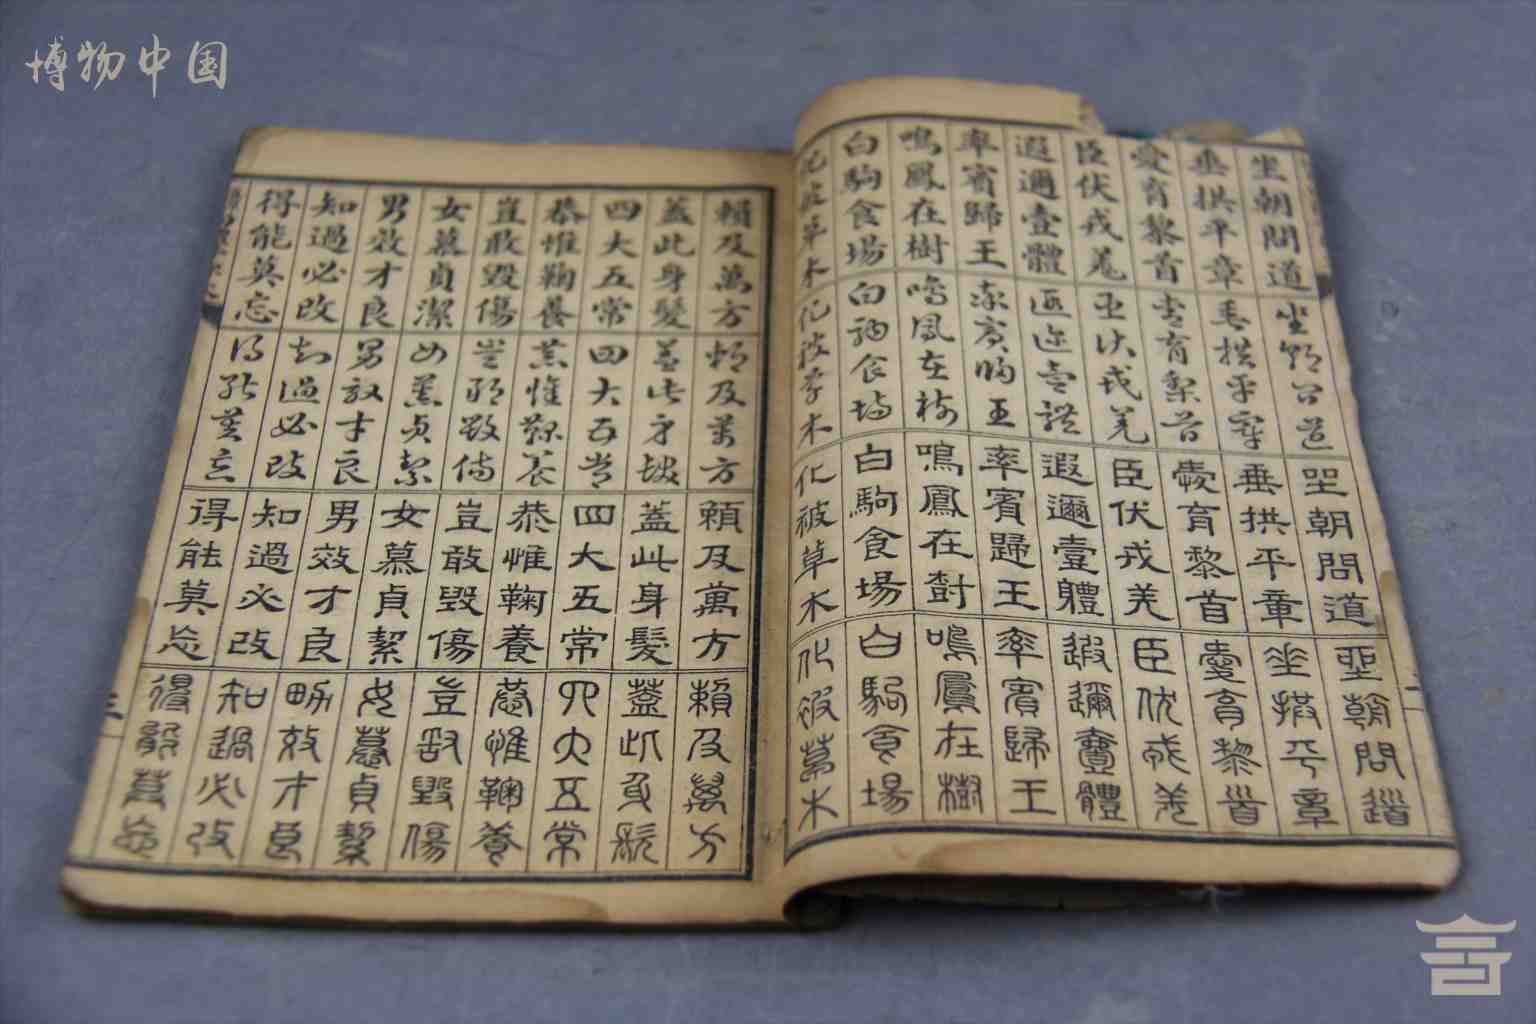 博物中国
坐朝問道坐朝問道坐朝問道坐朝問道
垂拱平章垂拱平章垂拱平章垂拱平章
愛育黎首愛育黎首愛育黎首愛育黎首
臣伏戎羌臣伏戎羌臣伏戎羌臣伏戎羌
遐邇壹體遐邇壹體遐邇壹體遐邇壹體
率賓歸王率賓歸王率賓歸王率賓歸王
鳴鳳在樹鳴鳳在樹鳴鳳在樹鳴鳳在樹
白駒食場白駒食場白駒食場白駒食場
化被草木化被草木化被草木化被草木
賴及萬方賴及萬方賴及萬方賴及萬方
蓋此身髮蓋此身髮蓋此身髮蓋此身髮
四大五常四大五常四大五常四大五常
恭惟鞠養恭惟鞠養恭惟鞠養恭惟鞠養
豈敢毀傷豈敢毀傷豈敢毀傷豈敢毀傷
女慕貞潔女慕貞絜女慕貞絜女慕貞絜
男效才良男效才良男效才良男效才良
知過必改知過必改知過必改知過必改
得能莫忘得能莫忘得能莫忘得能莫忘
三